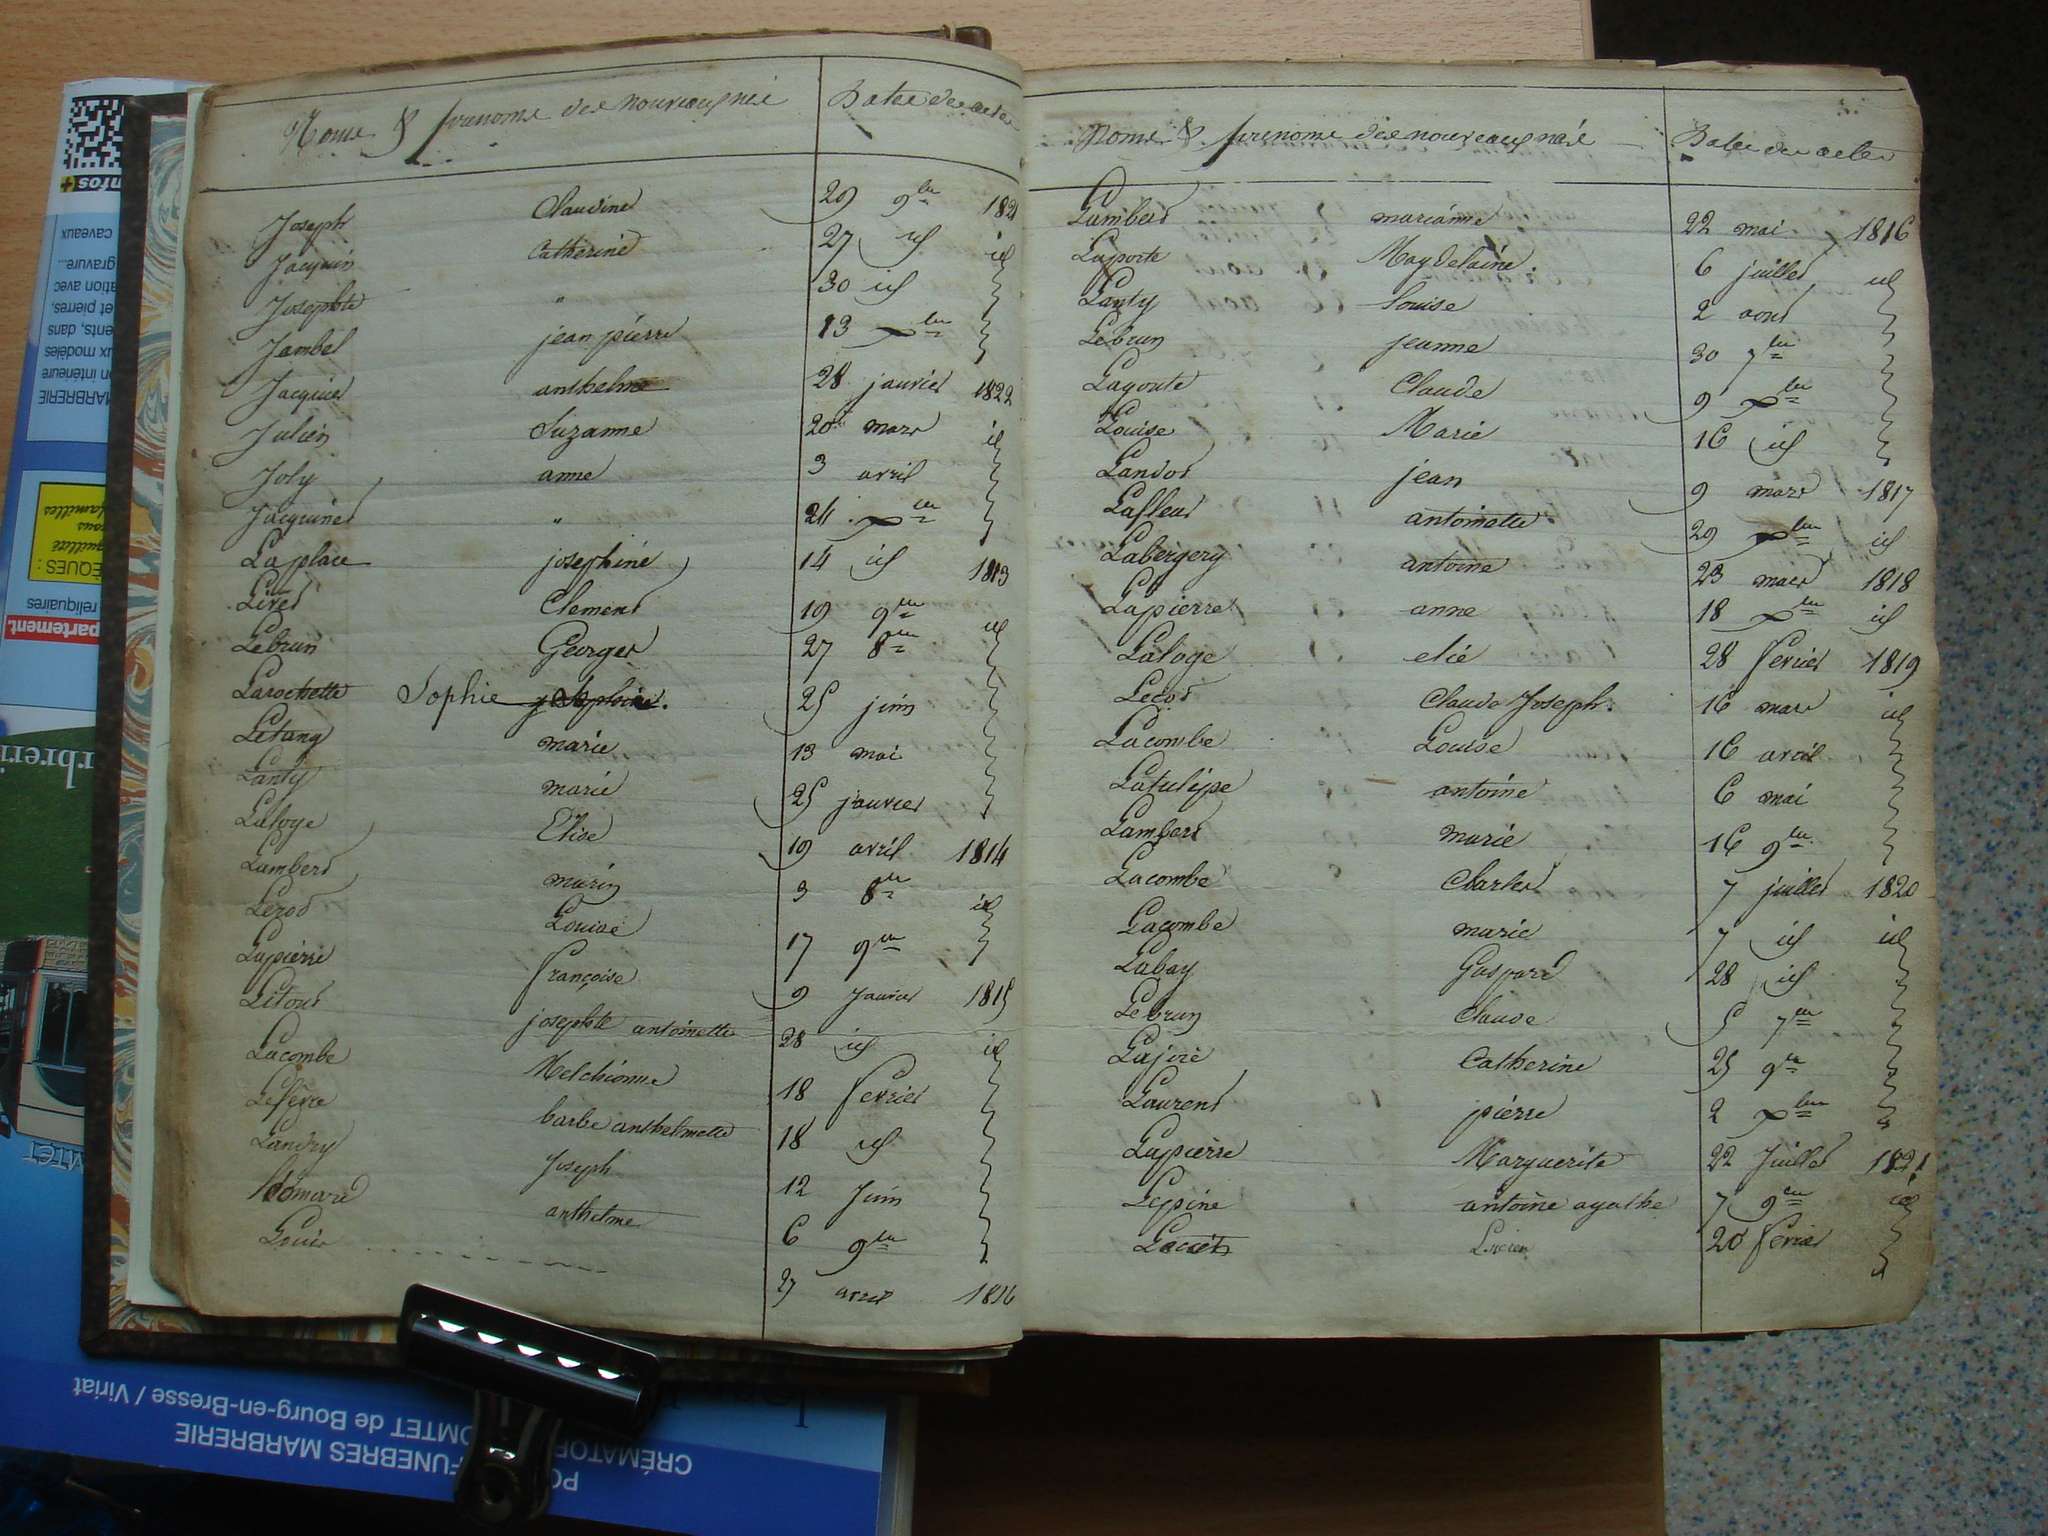 Noms & prenoms des nouveaux nés Dates des actes
Joseph Claudine 29 9bre 182
Jacquin Catherine 27 id id
Josephte " 30 id
Jambel jean pierre 13 Xbre
Jacquier anthelme 28 janvier 1822
Julien Suzanne 20 mars id
Joly anne 3 avril
Jacquine " 24 Xbre
Laplace josephine 14 id 1813
Livet Clement 19 9bre id
Lebrun Georges 27 8bre
Larochette Sophie 25 juin
Letang marie 13 mai
Lanty marie 25 janvier
Laloge Elise 19 avril 1814
Lambert marin 3 8bre id
Lerod Louise 17 9bre
Lapierre françoise 9 Janvier 1815
Litoud josephte antoinette 28 id id
Lacombe Melchionne 18 fevrier
Lefevre barbe anthelmette 18 id
Landry Joseph 12 Juin
anthelme 6 9bre
Louis 27 avril 1816
Noms & prenoms des nouveaux nés Dates des actes
Lambert marianne 22 mai 1816
Laporte Magdelaine 6 juillet id
Lanty Louise 2 aout
Lebrun jeanne 30 7bre
Lagoute Claude 9 Xbre
Louise Marie 16 id
Landod jean 9 mars 1817
Lafleur antoinette 29 Xbre id
Labergery antoine 23 mars 1818
Lapierre anne 18 Xbre id
Laloge elié 28 fevrier 1819
Lecod Claude Joseph 16 mars id
Lacombe Louise 16 avril
Latulipe antoine 6 mai
Lambert marie 16 9bre
Lacombe Charles 7 juillet 1820
Lacombe marie 7 id id
Labay Gaspard 28 id
Lebrun Claude 5 7bre
Lajoie Catherine 25 9bre
Laurent pierre 2 Xbre
Lapierre Marguerite 22 Juillet 1821
Lepine antoine agathe 7 9bre id
Lucien 20 fevrier
infos+
caveaux
gravure...
ation avec
et pierres,
ents, dans
ux modèles
on intérieure
MARBRERIE
EQUES :
vous
familles
reliquaires
partement.
FUNEBRES MARBRERIE
OMTET de Bourg-en-Bresse / Viriat